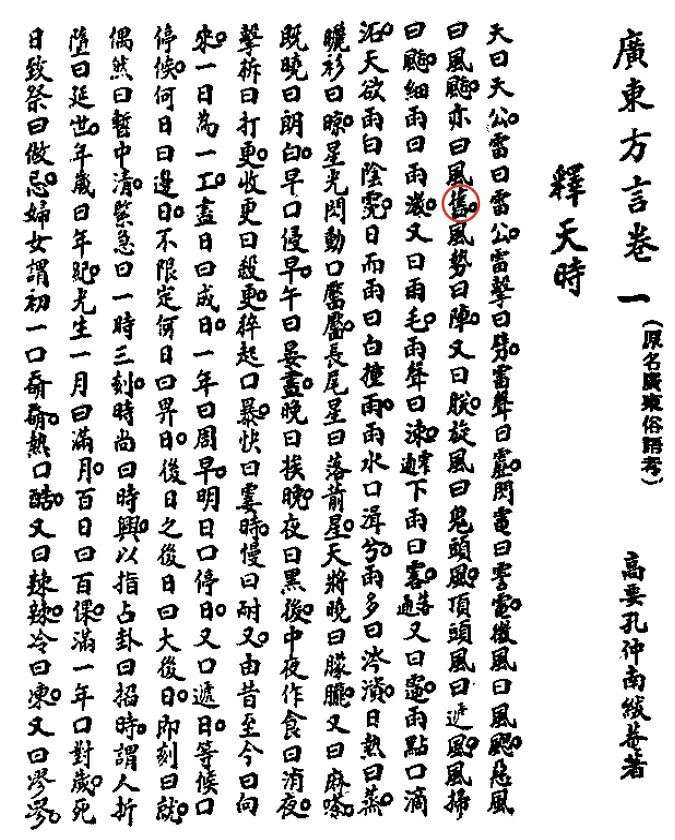 廣東方言卷一（原名廣東俗語考） 高要孔仲南緘菴著
釋天時
天曰天公。雷曰雷公。雷擊曰劈。雷聲曰靐。閃電曰電。微風曰風颸。怒風
曰風颮。亦曰風舊。風勢曰陣。又曰朘。旋風曰鬼頭風。頂頭風曰遞風。風掃
曰颮。細雨曰雨濃。又曰雨毛。雨聲曰涑。下雨曰。又曰。雨點口滴
沰。天欲雨曰陰霓。日而雨曰白撞雨。雨水口湒兮。雨多曰涔漬。日熱曰蒸。
曬衫曰晾。星光閃動口靨靨。長尾星曰落箭星。天將曉曰朦朧。又曰麻嗏。
既曉曰朗白。早口侵早。午曰晏晝。晚曰挨晚。夜曰黑後。中夜作食曰消夜。
擊柝曰打更。收更曰殺更。猝起口暴。快曰霎時。慢曰耐又。由昔至今曰向
來。一日為一工。盡日曰成日。一年曰周早。明日口停日。又口遞日。等候口
停候。何日曰邊日。不限定何日曰畀日。後日之後日曰大後日。即刻曰就。
偶然曰暫中清。緊急曰一時三刻。時尚曰時興。以指占卦曰掐時。謂人折
墮曰延世。年歲曰年紀。兒生一月曰滿月。百日曰百倮。滿一年口對歲。死
日致祭曰做忌。婦女謂初一口奇奇。熱口酷。又曰辣辣。冷曰凍。又曰漻漻。